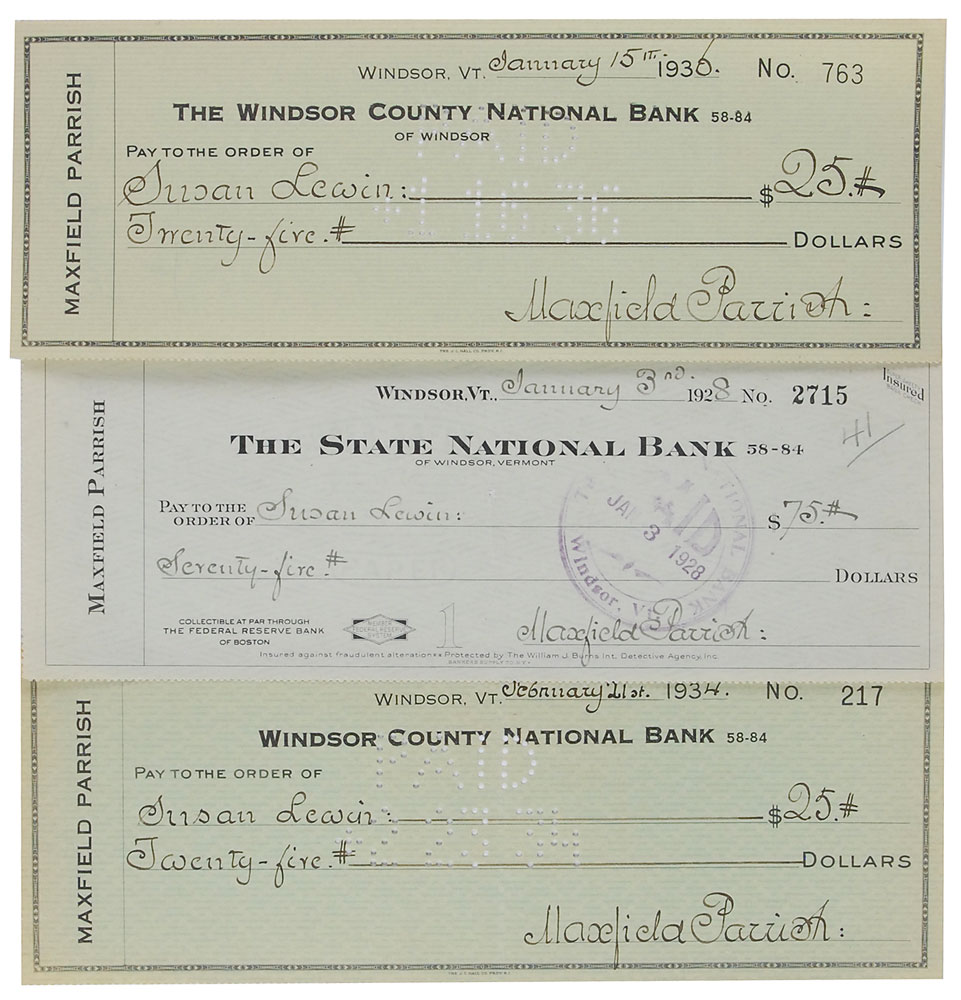 MAXFIELD PARRISH
WINDSOR, VT. January 15th 1936. No. 763
THE WINDSOR COUNTY NATIONAL BANK 58-84
OF WINDSOR
PAID
1 16 36
PAY TO THE ORDER OF
Susan Lewin: $25.#
Twenty-five.# DOLLARS
Maxfield Parrish:
MAXFIELD PARRISH
WINDSOR, VT., January 3rd. 1928 No. 2715
Insured
41
THE STATE NATIONAL BANK 58-84
OF WINDSOR, VERMONT
PAY TO THE
ORDER OF Susan Lewin: $75.#
PAID
JAN 3 1928
NATIONAL BANK
Windsor, Vt.
Seventy-five.# DOLLARS
COLLECTIBLE AT PAR THROUGH
THE FEDERAL RESERVE BANK
OF BOSTON
MEMBER
FEDERAL RESERVE
SYSTEM
1
Maxfield Parrish:
Insured against fraudulent alteration Protected by The William J. Burns Int. Detective Agency, Inc.
MAXFIELD PARRISH
WINDSOR, VT. February 21st. 1934. No. 217
WINDSOR COUNTY NATIONAL BANK 58-84
PAID
PAY TO THE ORDER OF
Susan Lewin: $25.#
Twenty-five.# DOLLARS
Maxfield Parrish: